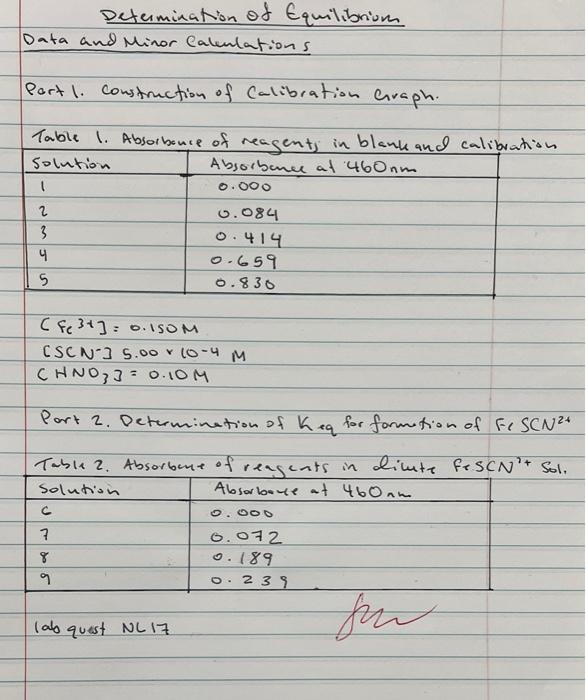 Determination of Equilibrium
Data and Minor Calculations
Part 1. Construction of Calibration Graph.
Table 1. Absorbance of reagents in blank and calibration
Solution Absorbance at 460nm
1 0.000
2 0.084
3 0.414
4 0.659
5 0.830
[Fe3+] = 0.150M
[SCN-] 5.00 x 10-4 M
[HNO3] = 0.10M
Part 2. Determination of Keq for formation of FeSCN2+
Table 2. Absorbance of reagents in dilute FeSCN2+ Sol.
Solution Absorbance at 460nm
6 0.000
7 0.072
8 0.189
9 0.239
lab quest NL17